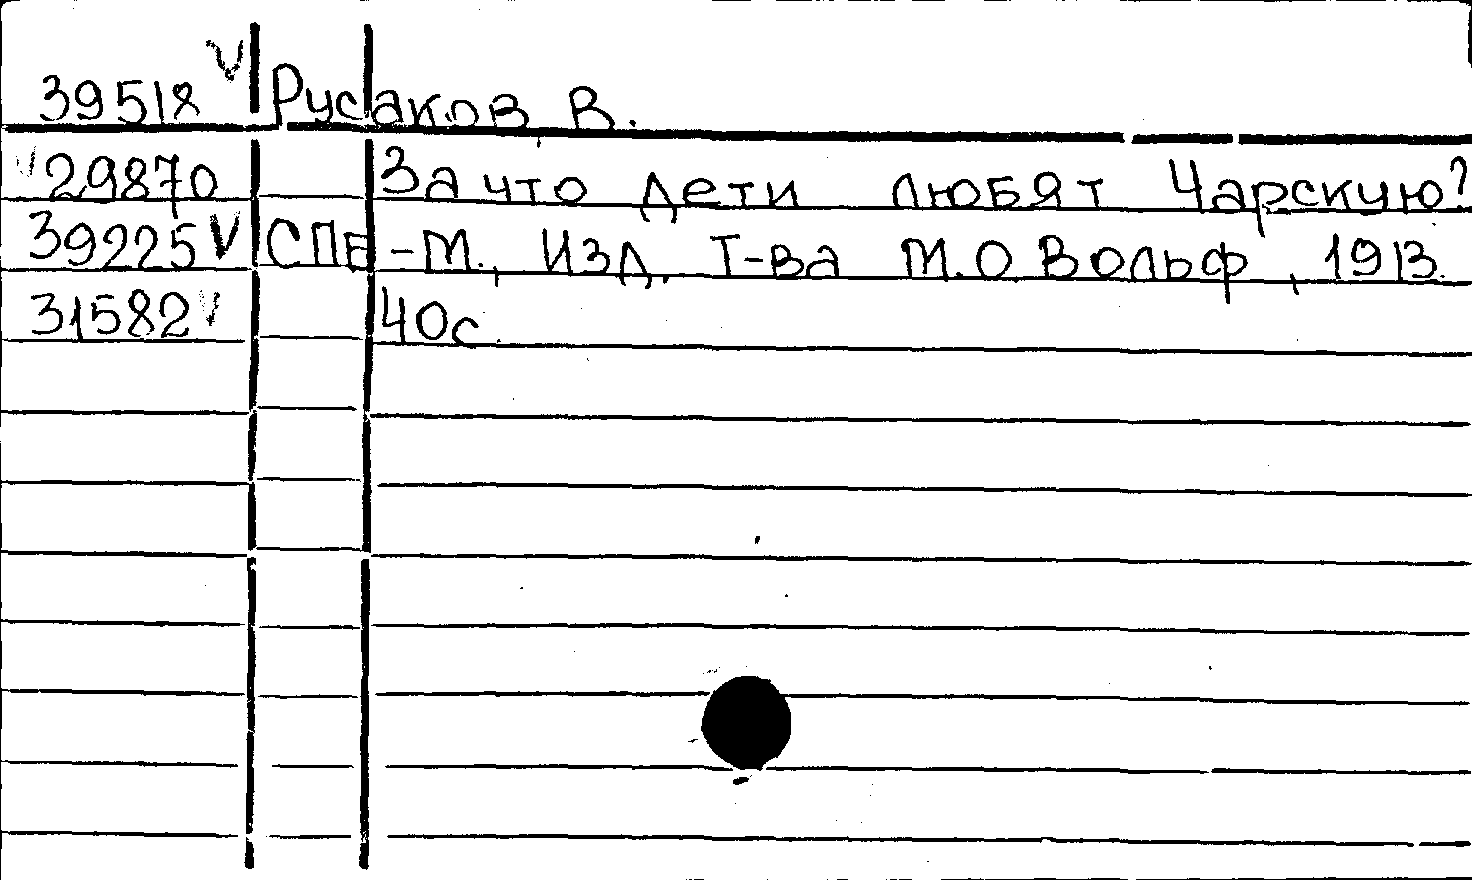 39518 V Русаков, В.
V 29870 За что дети любят Чарскую?
39225 V СПБ-М., Изд. Т-ва М.О Вольф, 1913.
31582 V 40с.